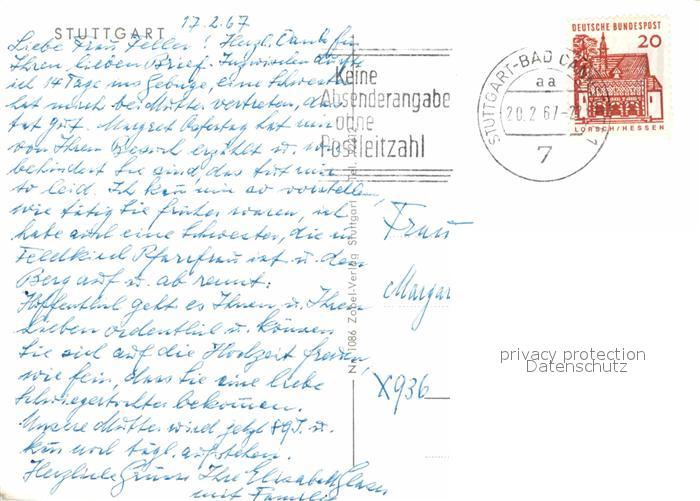 STUTTGART
17.2.67
Liebe Frau Feller! Herzl. Dank für
Ihren lieben Brief. Inzwischen durfte
ich 14 Tage ins Gebirge, eine Schwester
hat mich bei Mutter vertreten, das
tat gut. Margret Ostertag hat mir
von Ihrem Besuch erzählt u. wie
behindert Sie sind, das tut mir
so leid. Ich kann mir so vorstellen,
wie tätig Sie früher waren, ich
habe auch eine Schwester, die in
Feldkirch Pfarrfrau ist u. den
Berg auf u. ab rennt.
Hoffentlich geht es Ihnen u. Ihren
Lieben ordentlich u. können
Sie sich auf die Hochzeit freuen,
wie fein, dass Sie eine liebe
Schwiegertochter bekommen.
Unsere Mutter wird jetzt 89 J. u.
kann noch tägl. aufstehen.
Herzliche Grüsse Ihre Elisabeth Glaser
mit Familie
Keine
Absenderangabe
ohne
Postleitzahl
STUTTGART-BAD
aa
20.2.67-
7
1
DEUTSCHE BUNDESPOST
20
LORSCH/HESSEN
Nr. 1086 Zobel-Verlag Stuttgart Tel.
Frau
Margar
X936
privacy protection
Datenschutz